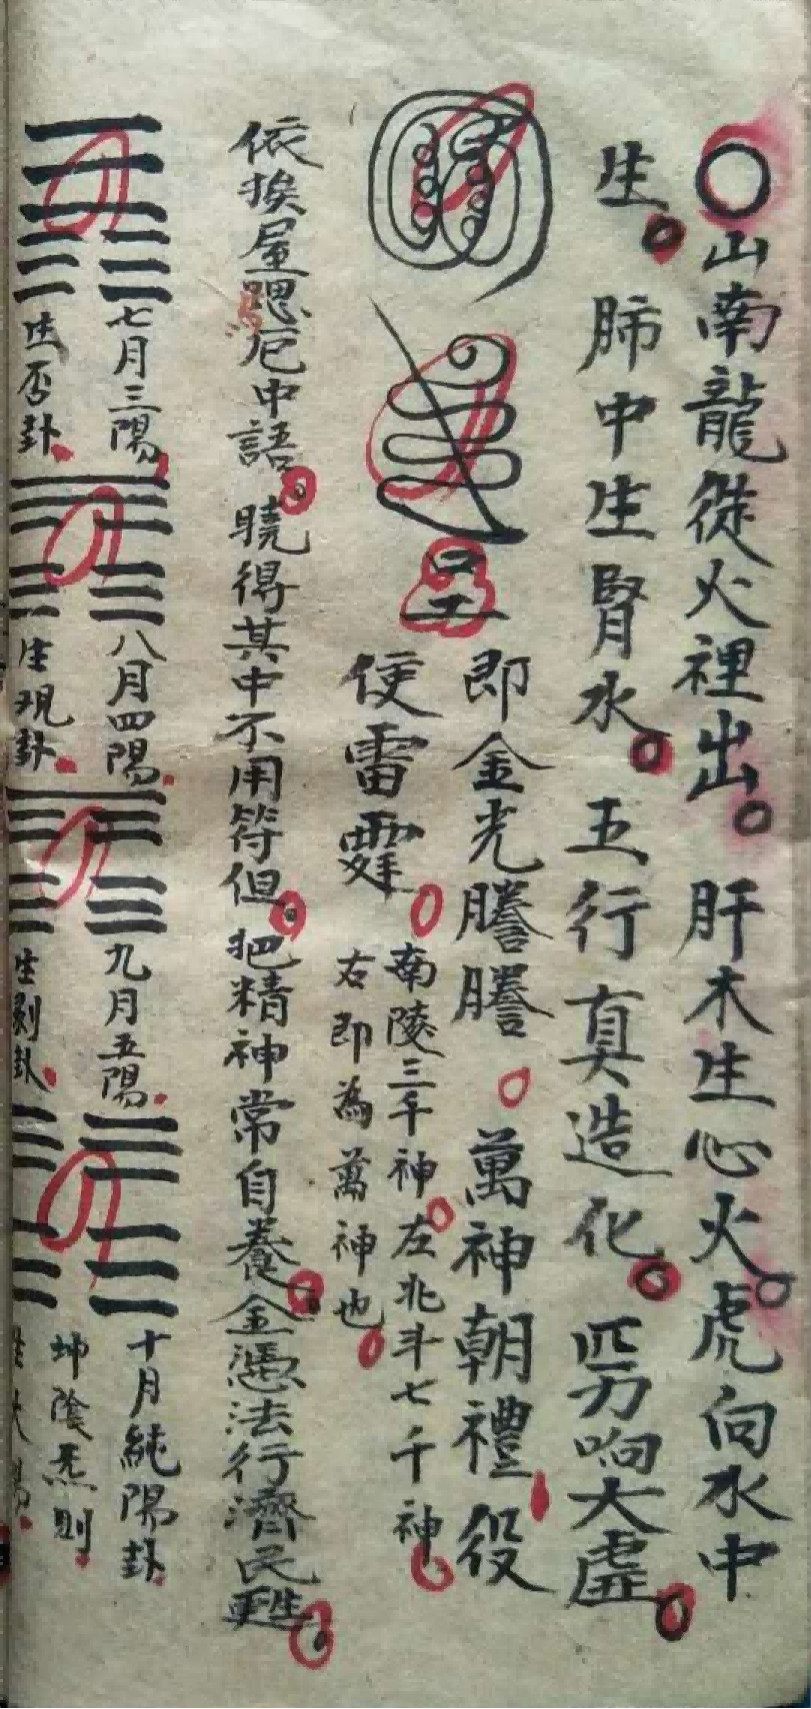 〇山南龍從火裡出。肝木生心火。虎向水中
生。肺中生腎水。五行真造化。響大虛。
即金光謄謄。萬神朝禮役
使雷霆
南陵三千神。左北斗七千神。
右即為萬神也。
依挨屋厄中語。曉得其中不用符但。把精神常自養。全憑法行濟民甦。
七月三陽。
生否卦。
八月四陽。
生現卦。
九月五陽。
生剝卦。
十月純陽卦。
坤陰炁則。